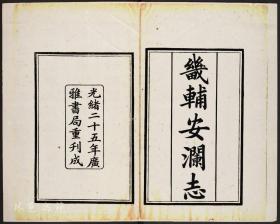 畿輔安瀾志
光緒二十五年廣
雅書局重刊成